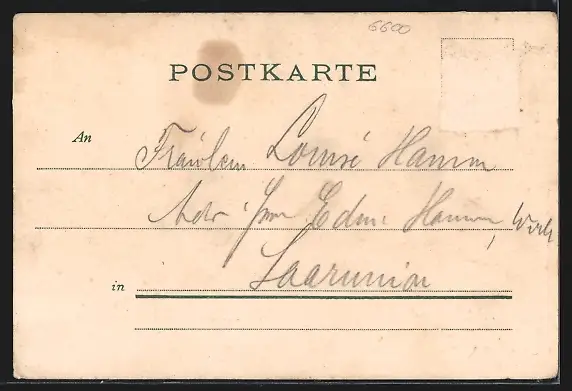 6600
POSTKARTE
An Fräulein Louise Hamm
Adr. Hrn Edm. Hamm, Wirth
in Saarunion